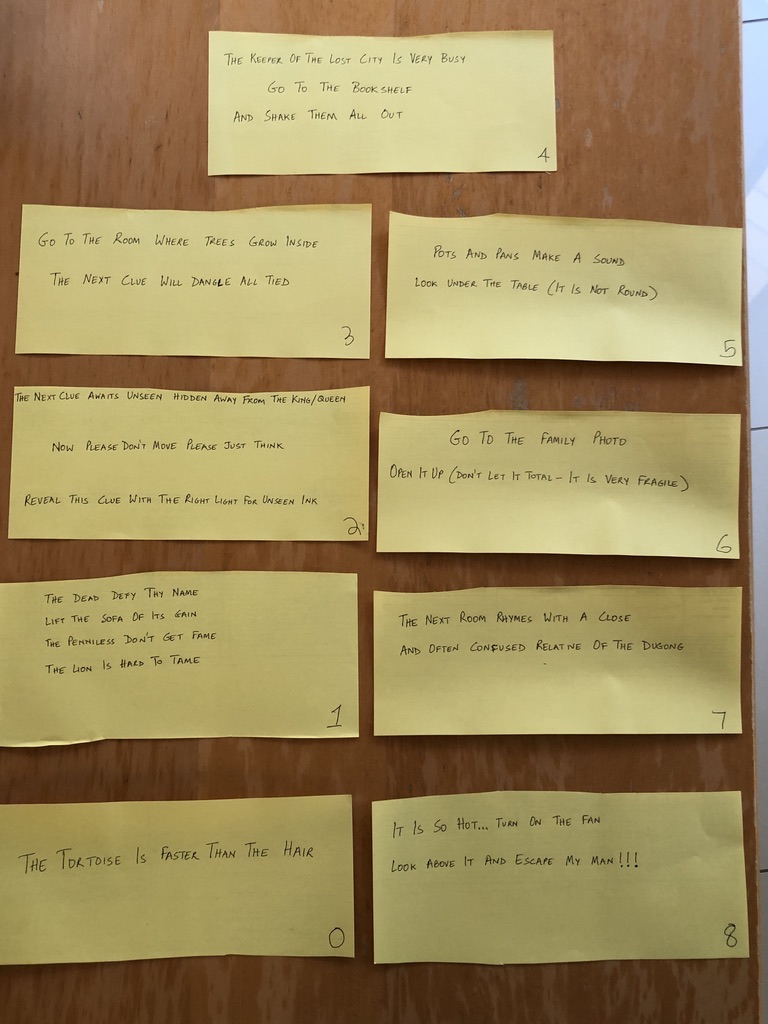 The Keeper Of The Lost City Is Very Busy
Go To The Bookshelf
And Shake Them All Out
4
Go To The Room Where Trees Grow Inside
The Next Clue Will Dangle All Tied
3
Pots And Pans Make A Sound
Look Under The Table (It Is Not Round)
5
The Next Clue Awaits Unseen Hidden Away From The King/Queen
Now Please Don't Move Please Just Think
Reveal This Clue With The Right Light For Unseen Ink
2
Go To The Family Photo
Open It Up (Don't Let It Total - It Is Very Fragile)
6
The Dead Defy Thy Name
Lift The Sofa Of Its Gain
The Penniless Don't Get Fame
The Lion Is Hard To Tame
1
The Next Room Rhymes With A Close
And Often Confused Relative Of The Dugong
7
The Tortoise Is Faster Than The Hair
0
It Is So Hot... Turn On The Fan
Look Above It And Escape My Man!!!
8